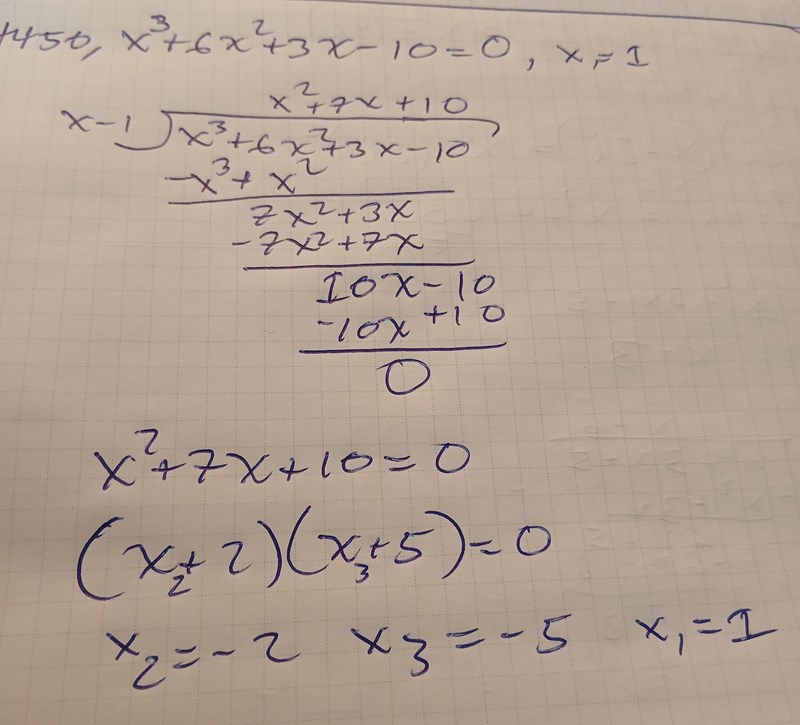 1450, x³+6x²+3x-10=0, x₁=1
x²+7x+10
x-1 x³+6x²+3x-10
-x³+x²
7x²+3x
-7x²+7x
10x-10
-10x+10
0
x²+7x+10=0
(x₂+2)(x₃+5)=0
x₂=-2 x₃=-5 x₁=1